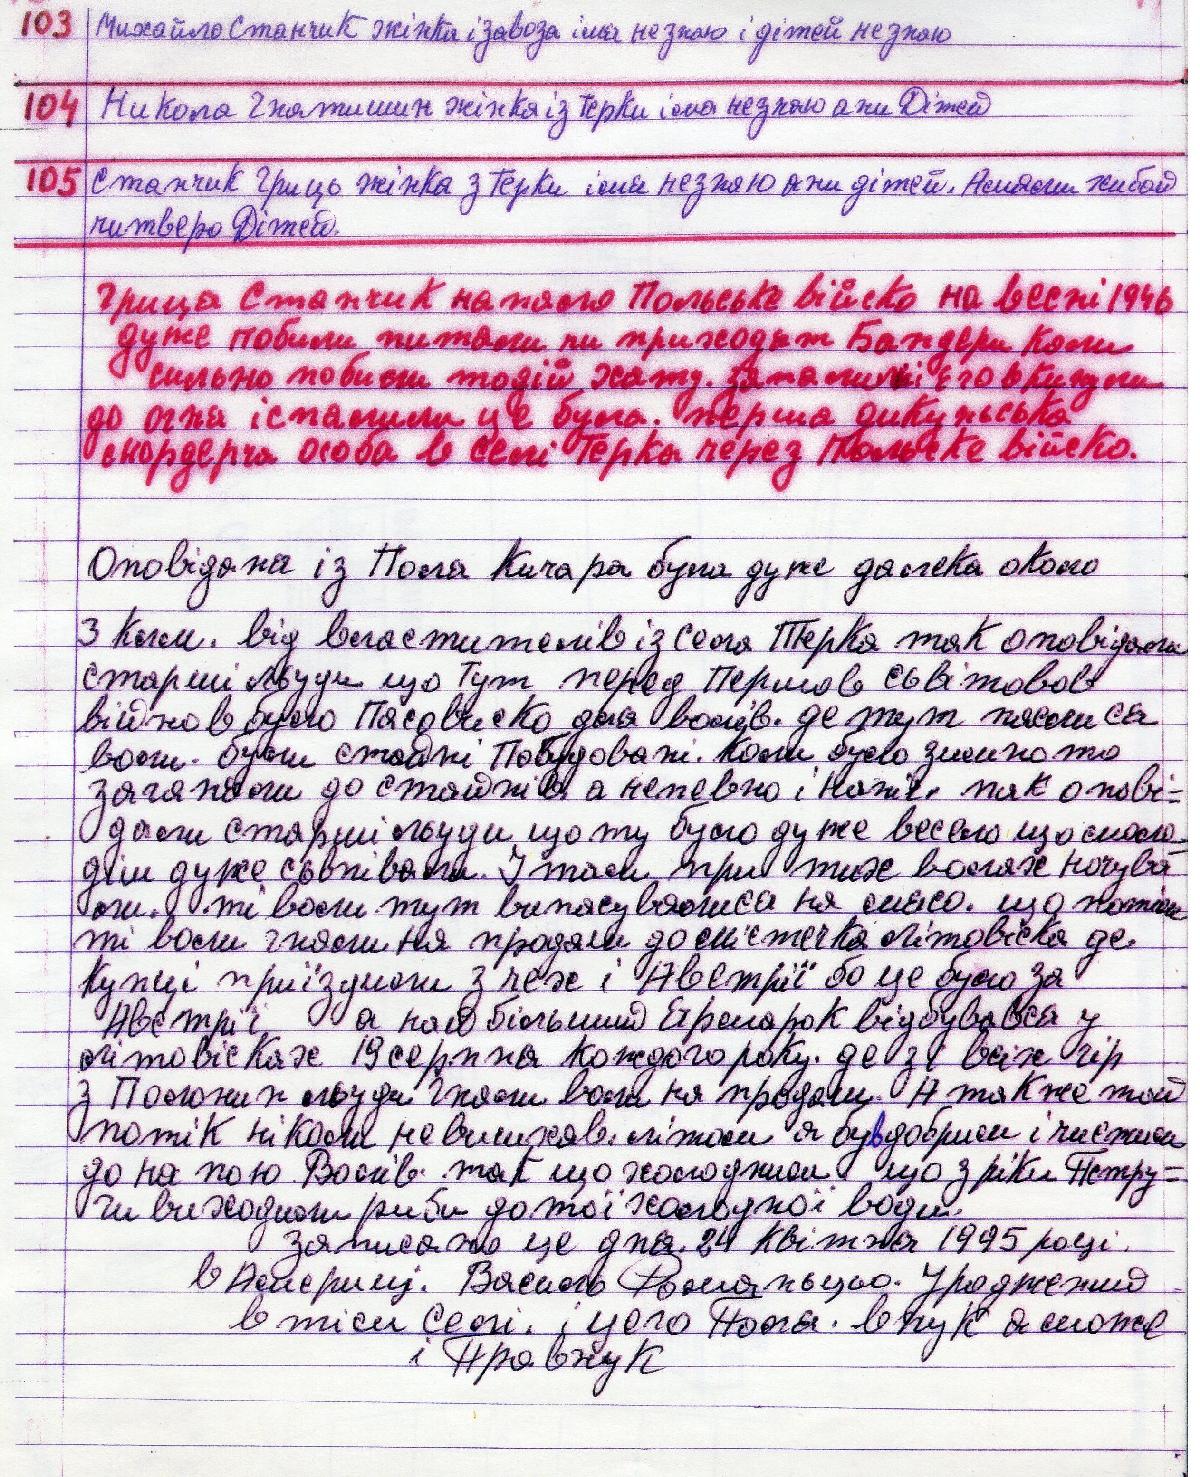 103 Михайло Станчик жінка ізавоза імя незнаю і дітей незнаю
104 Никола Гнатишин жінка із Терки імя незнаю ани Дітей
105 Станчик Гриць жінка з Терки імя незнаю ани дітей. Малами хибай
читверо Дітей.
Гриця Станчик напало Польске війско на весні 1946
дуже побили питали чи приходят Бандери Коли
сильно побили тодій хату. Запалили і єго вкинули
до огня іспалили це була. перша
мордерча особа в селі Терка через Польске війско.
Оповіданя із Поля Кичара була дуже далека около
3 Клм. від властителів із села Терка так оповідали
старші люди що Тут перед Першов сьвітовов
війнов було Пасовиско для волів. де тут паслися
воли. були стайні Побудовані. Коли було зимно то
заганяли до стайнів а непевно і Начі. пак опові=
дали старші люди що ту було дуже весело що моло=
діш дуже сьпівали. І там при тих волах ночува
ли. ті воли тут випасувалися на мясо. що потім
ті воли гнали на продаш до містечка Літовіска де.
Купці приїздили з чех і Австрії бо це було за
Австрії а найбільший Ярмарок відбувався у
Літовісках 19 серпня кождого року. де зі всіх гір
з Полонин люди гнали воли на продаш. А также той
потік ніколи невисихав. літом я був добрим і чистим
до на пою Волів. так що холодним що з ріки Петру=
чи виходили риби до тої холодної води.
записано це дня. 24 Квітня 1995 році.
в Америці. Василь Роменьцьо. Уродженмй
в тім Селі. і цего Поля. внук а може
і Правнук